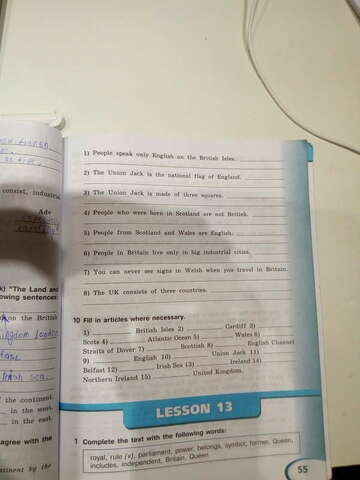 consist, industrial
Adv
k) "The Land and
owing sentences
on the British
kingdom
Irish sea
the continent.
in the west.
in the east.
agree with the
tinent by the
1) People speak only English on the British Isles.
2) The Union Jack is the national flag of England.
3) The Union Jack is made of three squares.
4) People who were born in Scotland are not British.
5) People from Scotland and Wales are English.
6) People in Britain live only in big industrial cities.
7) You can never see signs in Welsh when you travel in Britain.
8) The UK consists of three countries.
10 Fill in articles where necessary.
1) British Isles 2) Cardiff 3)
Scots 4) Atlantic Ocean 5) Wales 6)
Straits of Dover 7) Scottish 8) English Channel
9) English 10) Union Jack 11)
Belfast 12) Irish Sea 13) Ireland 14)
Northern Ireland 15) United Kingdom.
LESSON 13
1 Complete the text with the following words:
royal, rule (v), parliament, power, belongs, symbol, former, Queen,
includes, independent, Britain, Queen
55